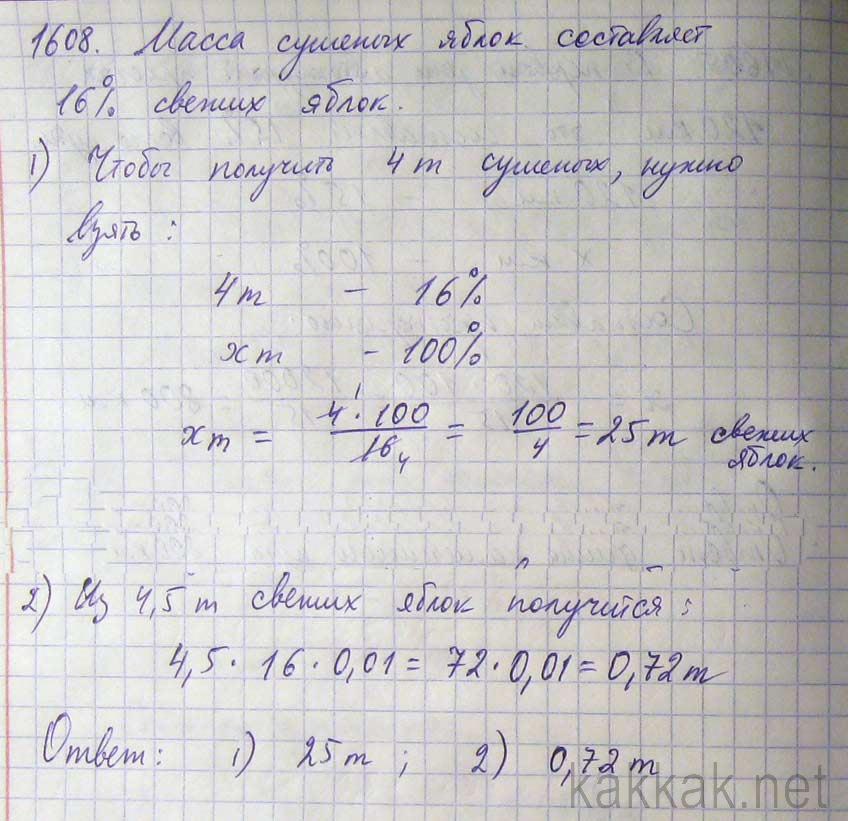 1608. Масса сушеных яблок составляет
16% свежих яблок.
1) Чтобы получить 4т сушеных, нужно
взять:
4т - 16%
xт - 100%
xт = 4·100/16 = 100/4 = 25т свежих
яблок.
2) Из 4,5т свежих яблок получится:
4,5·16·0,01 = 72·0,01 = 0,72т
Ответ: 1) 25т; 2) 0,72т
kakkak.net